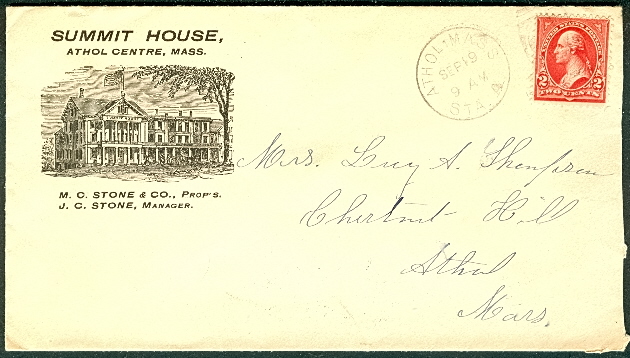 SUMMIT HOUSE,
ATHOL CENTRE, MASS.
M. C. STONE & CO., PROP'S.
J. C. STONE, MANAGER.
ATHOL · MASS
SEP 19
9 AM
STA. A
TWO CENTS
2 2
Mrs. Lucy A. Thompson
Chestnut Hill
Athol
Mass.